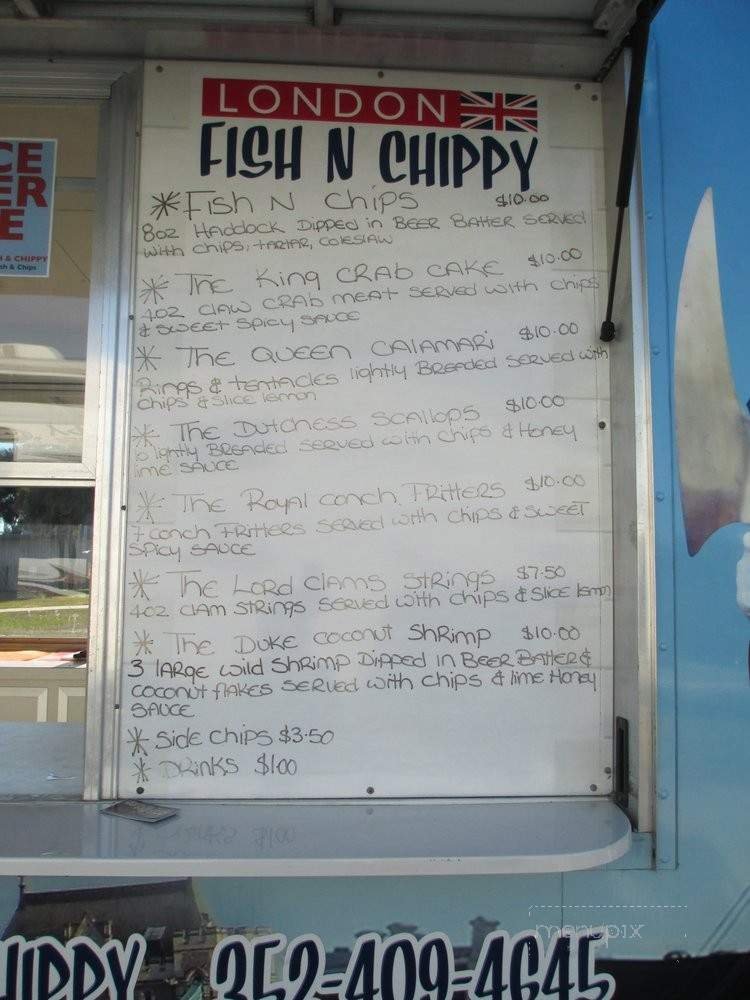 LONDON
FISH N CHIPPY
* Fish N Chips $10.00
8oz Haddock Dipped in Beer Batter served
with chips, tartar, coleslaw
* The King Crab Cake $10.00
4oz claw crab meat served with chips
& sweet spicy sauce
* The Queen Calamari $10.00
Rings & tentacles lightly Breaded served with
chips & slice lemon
* The Dutchess Scallops $10.00
lightly Breaded served with chips & Honey
lime sauce
* The Royal conch Fritters $10.00
7 conch Fritters served with chips & sweet
spicy sauce
* The Lord Clams Strings $7.50
4oz clam strings served with chips & slice lemon
* The Duke coconut Shrimp $10.00
3 large wild shrimp Dipped in Beer Batter &
coconut flakes served with chips & lime Honey
sauce
* Side chips $3.50
* Drinks $1.00
CE
ER
E
& CHIPPY
h & Chips
HIPPY 352-409-4645
menupix